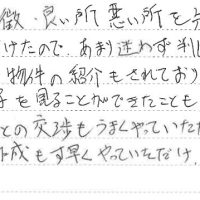 徴・良い所 悪い所を
けたので、あまり迷わず判
物件の紹介もされており
子を見ることができたことも
との交渉もうまくやっていただ
成も手早くやっていただけ